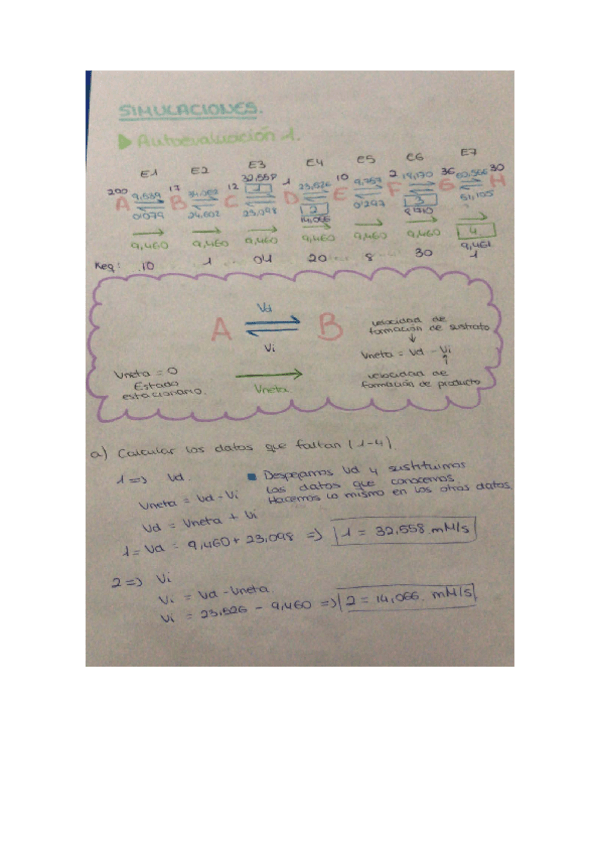 SIMULACIONES.
Autoevaluación 1.
E1 E2 E3 E4 E5 E6 E7
32.558
200 9,539 17 12 1 1 23,526 10 9,757 2 18,170 36 30
A B C D E F G H
0.079 23,098 2 0.297 3 51,105
14,066 8,710 4
9,460 9,460 9,460 9,460 9,460 9,460 9,461
Keq: 10 1 04 20 8 30 1
Vd
A B
Vi
velocidad de
formación de sustrato
Vneta = Vd - Vi
velocidad de
formación de producto
Vneta = 0
Estado
estacionario.
Vneta
a) Calcular los datos que faltan (1-4)
1 => Vd
Despejamos Vd y sustituimos
los datos que conocemos.
Hacemos lo mismo en los otros datos.
Vneta = Vd - Vi
Vd = Vneta + Vi
1 = Vd = 9,460 + 23,098 => 1 = 32,558 mM/s
2 => Vi
Vi = Vd - Vneta
Vi = 23,526 - 9,460 => 2 = 14,066. mM/s